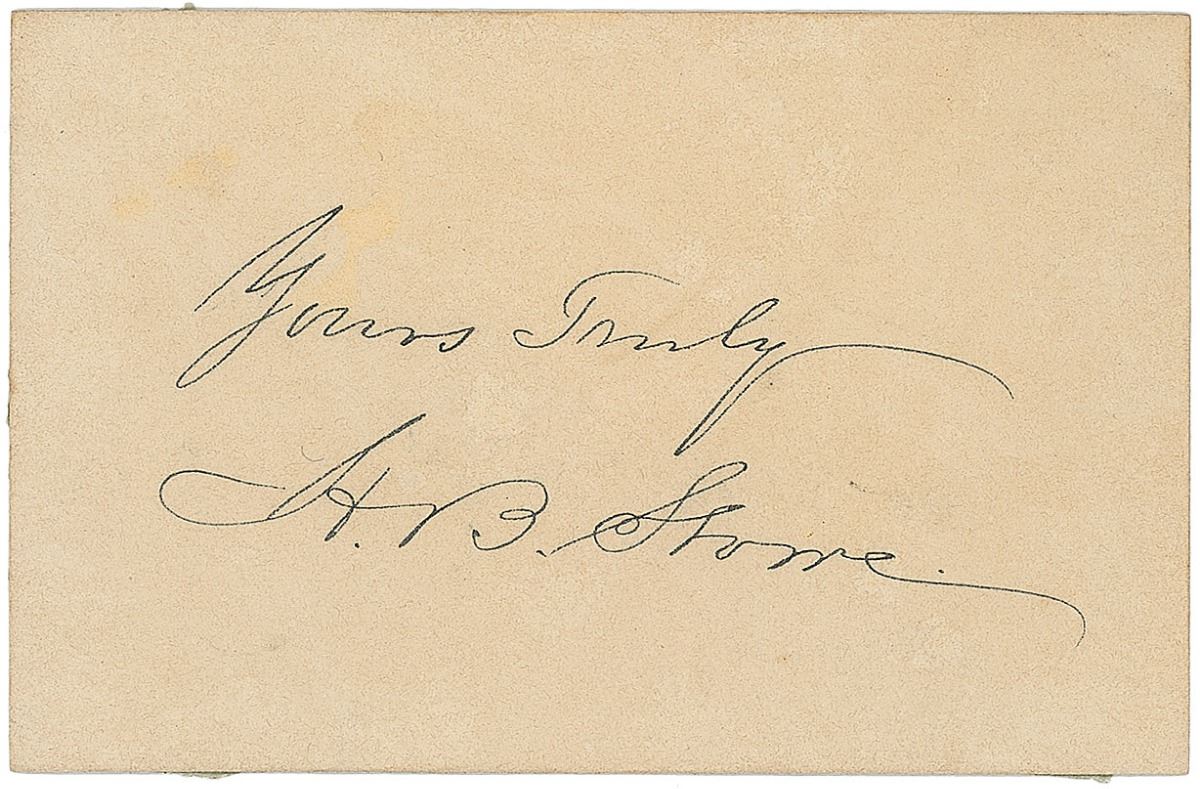 Yours Truly
H. B. Stowe.